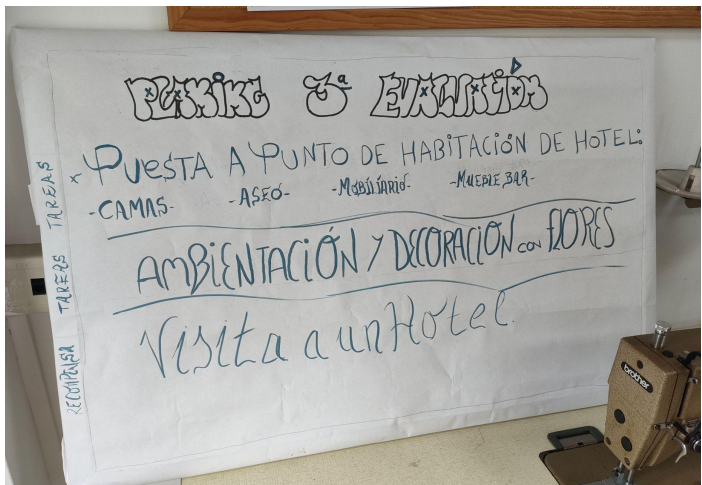 PLANING 3ª EVALUACIÓN
TAREAS
* PUESTA A PUNTO DE HABITACIÓN DE HOTEL:
-CAMAS- -ASEO- -MOBILIARIO- -MUEBLE BAR-
TAREAS
AMBIENTACIÓN Y DECORACIÓN CON FLORES
RECOMPENSA
Visita a un Hotel.
brother